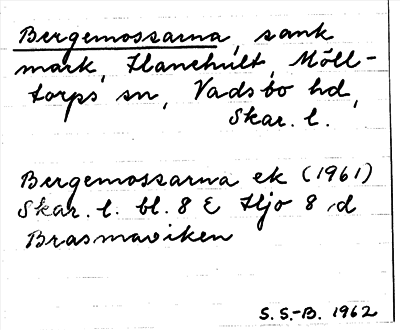 Bergemossarna, sank
mark, Hanehult, Möll-
torps sn, Vadsbo hd,
Skar. l.
Bergemossarna ek (1961)
Skar. l. bl. 8 E Hjo 8 d
Brasmaviken
S. S.-B. 1962